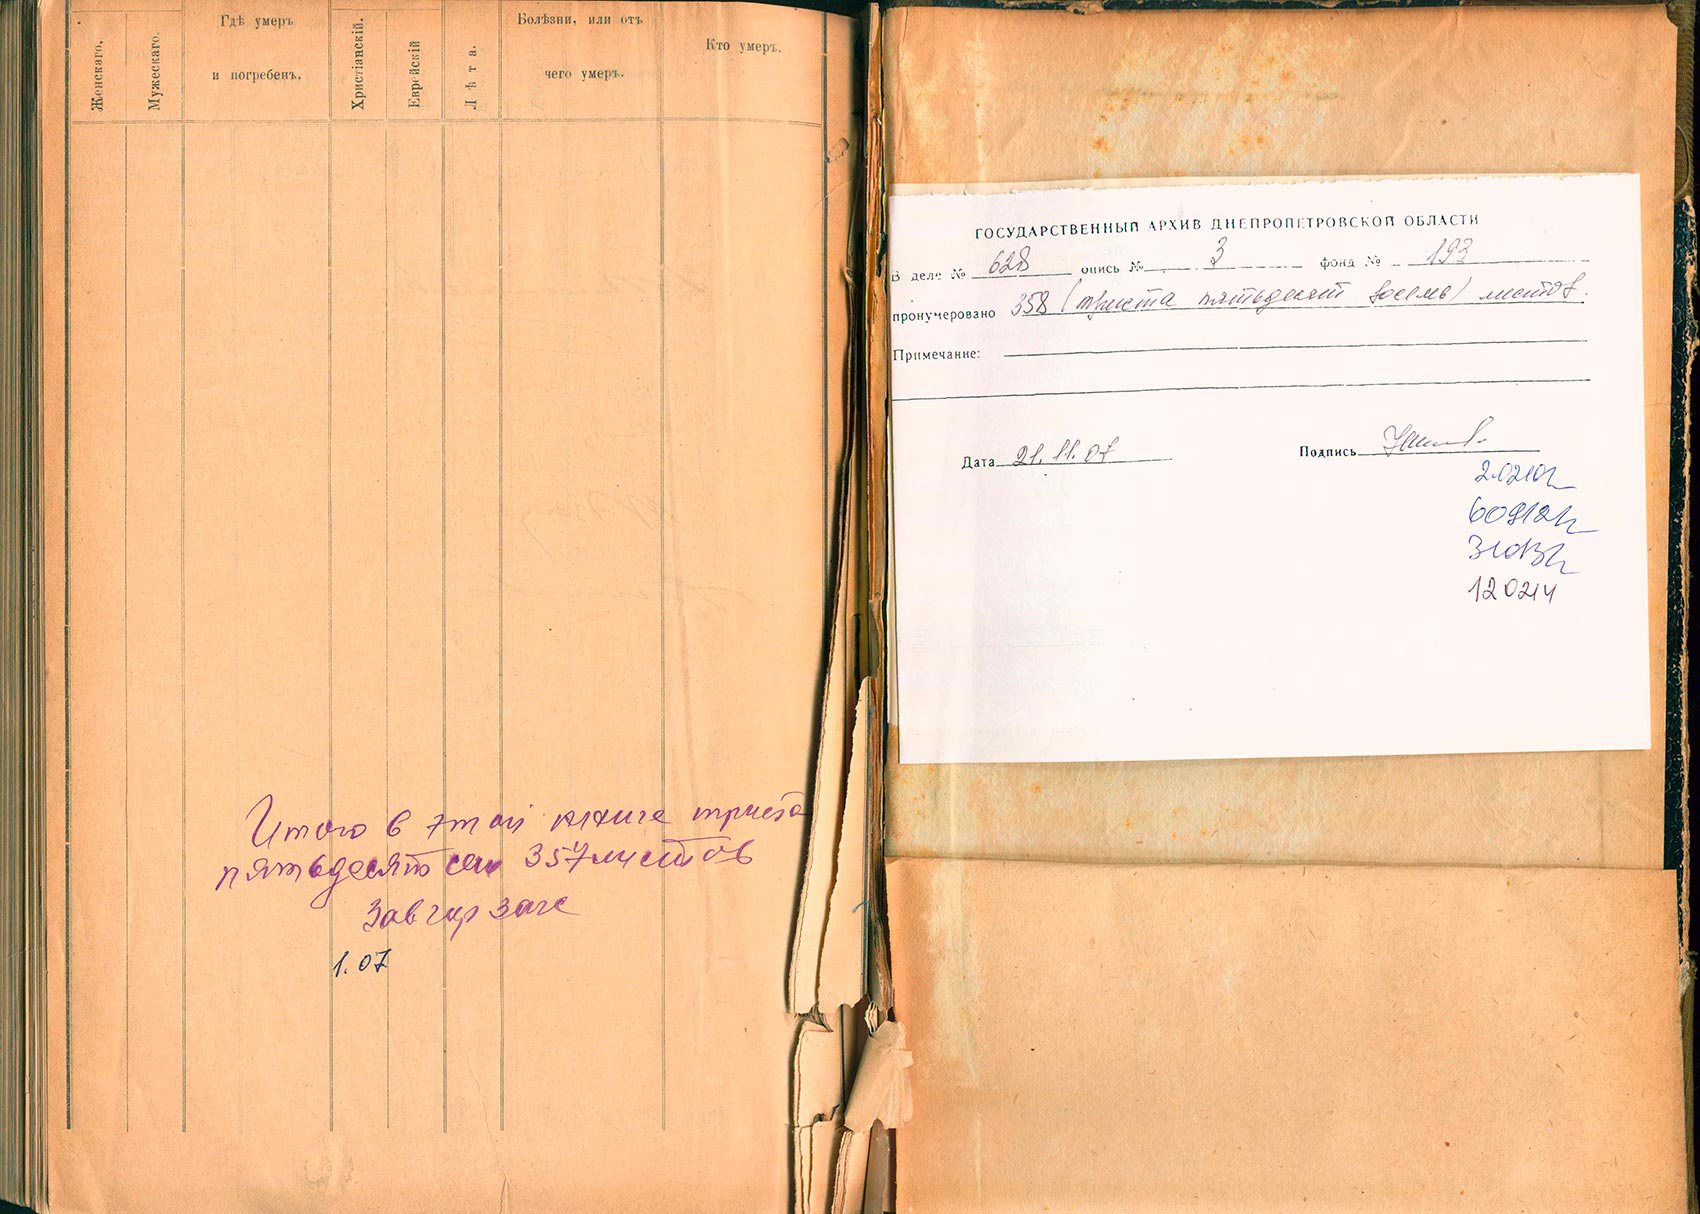 Женскаго.
Мужескаго.
Гдѣ умеръ
и погребенъ.
Христіанскій.
Еврейскій
Лѣта.
Болѣзни, или отъ
чего умеръ.
Кто умеръ.
Итого в этой книге триста
пятьдесят сем 357 листов
Зав гор загс
1.07
ГОСУДАРСТВЕННЫЙ АРХИВ ДНЕПРОПЕТРОВСКОЙ ОБЛАСТИ
В деле № 628 опись № 3 фонд № 193
пронумеровано 358 (триста пятьдесят восемь) листов.
Примечание:
Дата 21.11.07 Подпись